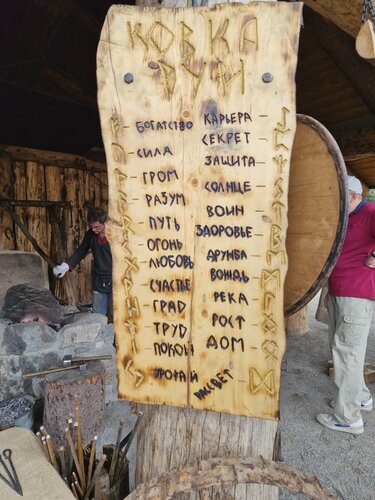 КОВКА
РУН
БОГАТСТВО
СИЛА
ГРОМ
РАЗУМ
ПУТЬ
ОГОНЬ
ЛЮБОВЬ
СЧАСТЬЕ
ГРАД
ТРУД
ПОКОЙ
УРОЖАЙ
КАРЬЕРА
СЕКРЕТ
ЗАЩИТА
СОЛНЦЕ
ВОИН
ЗДОРОВЬЕ
ДРУЖБА
ВОЖДЬ
РЕКА
РОСТ
ДОМ
РАССВЕТ